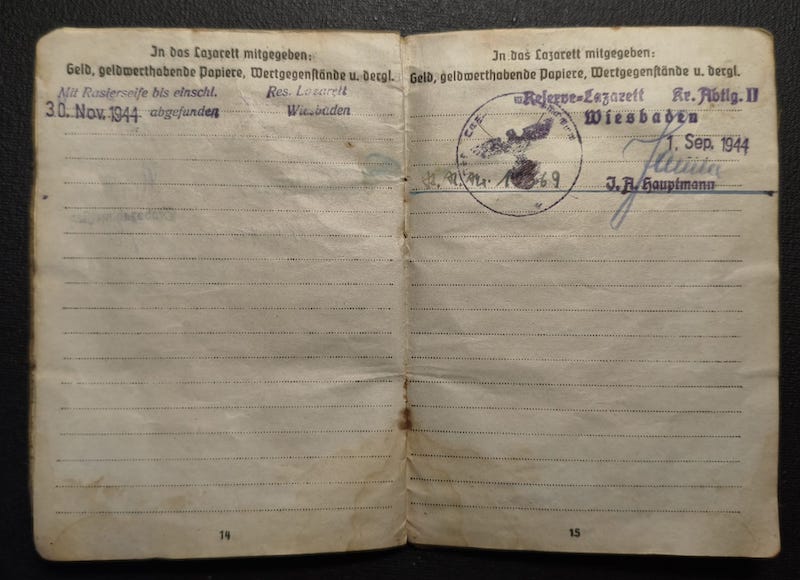 In das Lazarett mitgegeben:
Geld, geldwerthabende Papiere, Wertgegenstände u. dergl.
Mit Rasierseife bis einschl. Res. Lazarett
30. Nov. 1944 abgefunden Wiesbaden
14
In das Lazarett mitgegeben:
Geld, geldwerthabende Papiere, Wertgegenstände u. dergl.
Reserve-Lazarett Kr. Abtlg. II
Wiesbaden
1. Sep. 1944
J. A. Hauptmann
15